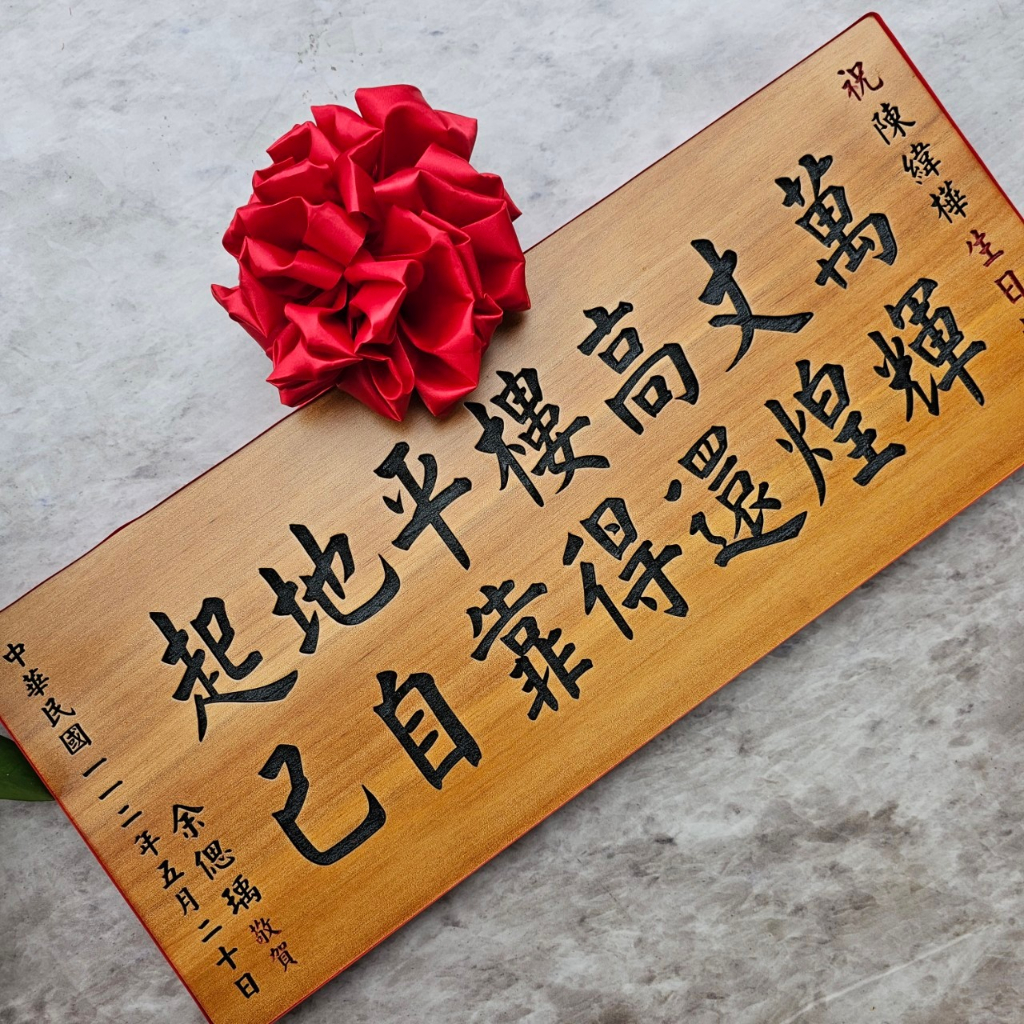 祝陳緯樺生日
萬丈高樓平地起
輝煌還得靠自己
余偲瑀敬賀
中華民國一一二年五月二十日